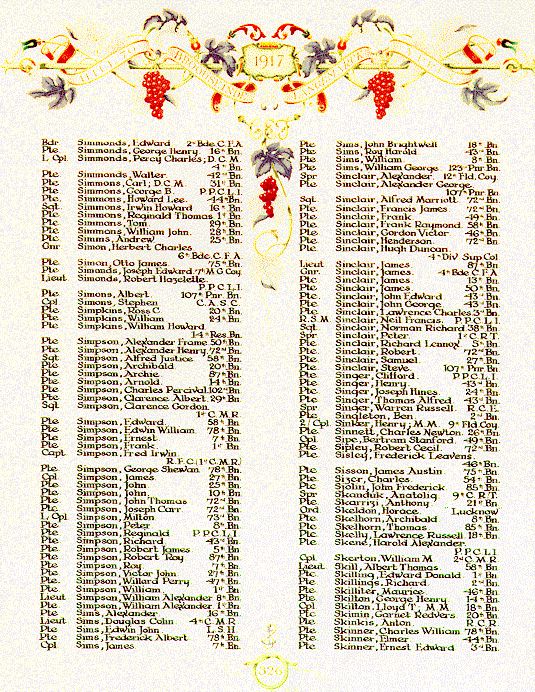 1917
Bdr Simmonds, Edward 2nd Bde. C.F.A.
Pte Simmonds, George Henry. 16th Bn.
L Cpl. Simmonds, Percy Charles; D.C.M.
4th Bn.
Pte Simmonds, Walter 42nd Bn.
Pte Simmons, Carl; D.C.M. 31st Bn.
Pte Simmons, George B. P.P.C.L.I.
Pte Simmons, Howard Lee. 44th Bn.
Sgt. Simmons, Irwin Howard 16th Bn.
Pte Simmons, Reginald Thomas 1st Bn.
Pte Simmons, Tom 29th Bn.
Pte Simmons, William John. 28th Bn.
Pte Simms, Andrew 25th Bn.
Gnr Simon, Herbert Charles
6th Bde. C.F.A.
Pte Simon, Otto James 75th Bn.
Pte Simonds, Joseph Edward. 7th M.G. Coy.
Lieut Simonds, Robert Hazelelle.
P.P.C.L.I.
Pte Simons, Albert. 107th Pnr. Bn.
Cpl Simons, Stephen C.A.S.C.
Pte Simpkins, Ross C. 20th Bn.
Pte Simpkins, William 24th Bn.
Pte Simpkins, William Howard.
14th Res. Bn.
Pte Simpson, Alexander Frame 50th Bn.
Pte Simpson, Alexander Henry. 72nd Bn.
Sgt Simpson, Alfred Justice 58th Bn.
Pte Simpson, Archibald 20th Bn.
Pte Simpson, Archie 87th Bn.
Pte Simpson, Arnold 14th Bn.
Pte Simpson, Charles Percival. 102nd Bn.
Pte Simpson, Clarence Albert 29th Bn.
Sgt Simpson, Clarence Gordon.
1st C.M.R.
Pte Simpson, Edward. 58th Bn.
Pte Simpson, Edwin William 78th Bn.
Pte Simpson, Ernest 7th Bn.
Pte Simpson, Frank 1st Bn.
Capt Simpson, Fred Irwin
R.F.C. (1st C.M.R.)
Pte Simpson, George Shewan 78th Bn.
Cpl Simpson, James 27th Bn.
Pte Simpson, John 25th Bn.
Pte Simpson, John 10th Bn.
Pte Simpson, John Thomas 72nd Bn.
Pte Simpson, Joseph Carr 72nd Bn.
L/Cpl Simpson, Milton 73rd Bn.
Pte Simpson, Peter 8th Bn.
Pte Simpson, Reginald P.P.C.L.I.
Pte Simpson, Richard 43rd Bn.
Pte Simpson, Robert James 5th Bn.
Pte Simpson, Robert Roy 87th Bn.
Pte Simpson, Roy 7th Bn.
Pte Simpson, Victor John 27th Bn.
Pte Simpson, Willard Perry 47th Bn.
Pte Simpson, William 1st Bn.
Lieut Simpson, William Alexander 8th Bn.
Pte Simpson, William Alexander 1st Bn.
Pte Sims, Alexander 16th Bn.
Lieut Sims, Douglas Colin 4th C.M.R.
Pte Sims, Edwin John L.S.H.
Pte Sims, Frederick Albert 78th Bn.
Cpl Sims, James 7th Bn.
Pte Sims, John Brightwell 18th Bn.
Pte Sims, Roy Harold 43rd Bn.
Pte Sims, William 8th Bn.
Pte Sims, William George 123rd Pnr. Bn.
Spr Sinclair, Alexander 12th Fld. Coy.
Pte Sinclair, Alexander George
107th Pnr Bn
Sgt. Sinclair, Alfred Marriott 72nd Bn.
Pte Sinclair, Francis James 72nd Bn.
Pte Sinclair, Frank 49th Bn.
Pte Sinclair, Frank Raymond 58th Bn.
Pte Sinclair, Gordon Victor 46th Bn.
Pte Sinclair, Henderson. 72nd Bn.
Pte Sinclair, Hugh Duncan
4th Div. Sup. Col
Lieut Sinclair, James 87th Bn.
Gnr. Sinclair, James. 4th Bde C.F.A.
Pte Sinclair, James. 13th Bn.
Pte Sinclair, James 50th Bn.
Pte Sinclair, John Edward 43rd Bn.
Pte Sinclair, John George 43rd Bn.
Pte Sinclair, Lawrence Charles 3rd Bn.
R.S.M. Sinclair, Neil Francis. P.P.C.L.I.
Sgt. Sinclair, Norman Richard 38th Bn.
Spr Sinclair, Peter 1st C.R.T.
Pte Sinclair, Richard Lennox 5th Bn.
Pte Sinclair, Robert 72nd Bn.
Pte Sinclair, Samuel 27th Bn.
Pte Sinclair, Steve 107th Pnr Bn.
Pte Singer, Clifford P.P.C.L.I.
Pte Singer, Henry 43rd Bn.
Pte Singer, Joseph Hines. 24th Bn.
Pte Singer, Thomas Alfred 43rd Bn.
Spr Singer, Warren Russell R.C.E.
Pte Singleton, Ben. 2nd Bn.
2/Cpl. Sinker, Henry; M.M. 9th Fld Coy.
Pte Sinnett, Charles Newton 26th Bn.
Cpl. Sipe, Bertram Stanford. 49th Bn.
Pte Sipley, Robert Cecil. 72nd Bn.
Pte Sisley, Frederick Leavens.
46th Bn.
Pte Sisson, James Austin 75th Bn.
Pte Sizer, Charles 54th Bn.
Pte Sjolin, John Frederick 85th Bn.
Spr Skanduk, Anatoliq 9th C.R.T.
Pte Skarrizi, Anthony 21st Bn.
Ord Skeldon, Horace Lucknow
Pte Skelhorn, Archibald 8th Bn.
Pte Skelhorn, Thomas 85th Bn.
Pte Skelly, Lawrence Russell 18th Bn.
Pte Skene, Harold Alexander
P.P.C.L.I.
Cpl Skerton, William M. 2nd C.M.R.
Lieut Skill, Albert Thomas 58th Bn.
Pte Skilling, Edward Donald 1st Bn.
Pte Skillings, Richard 2nd Bn.
Pte Skilliter, Maurice 46th Bn.
Pte Skilton, George Henry 14th Bn.
Cpl Skilton, Lloyd T., M.M. 18th Bn.
Pte Skimin, Garnet Redvers 20th Bn.
Pte Skinkis, Anton R.C.R.
Pte Skinner, Charles William 78th Bn.
Pte Skinner, Elmer 44th Bn.
Pte Skinner, Ernest Edward 3rd Bn.
326